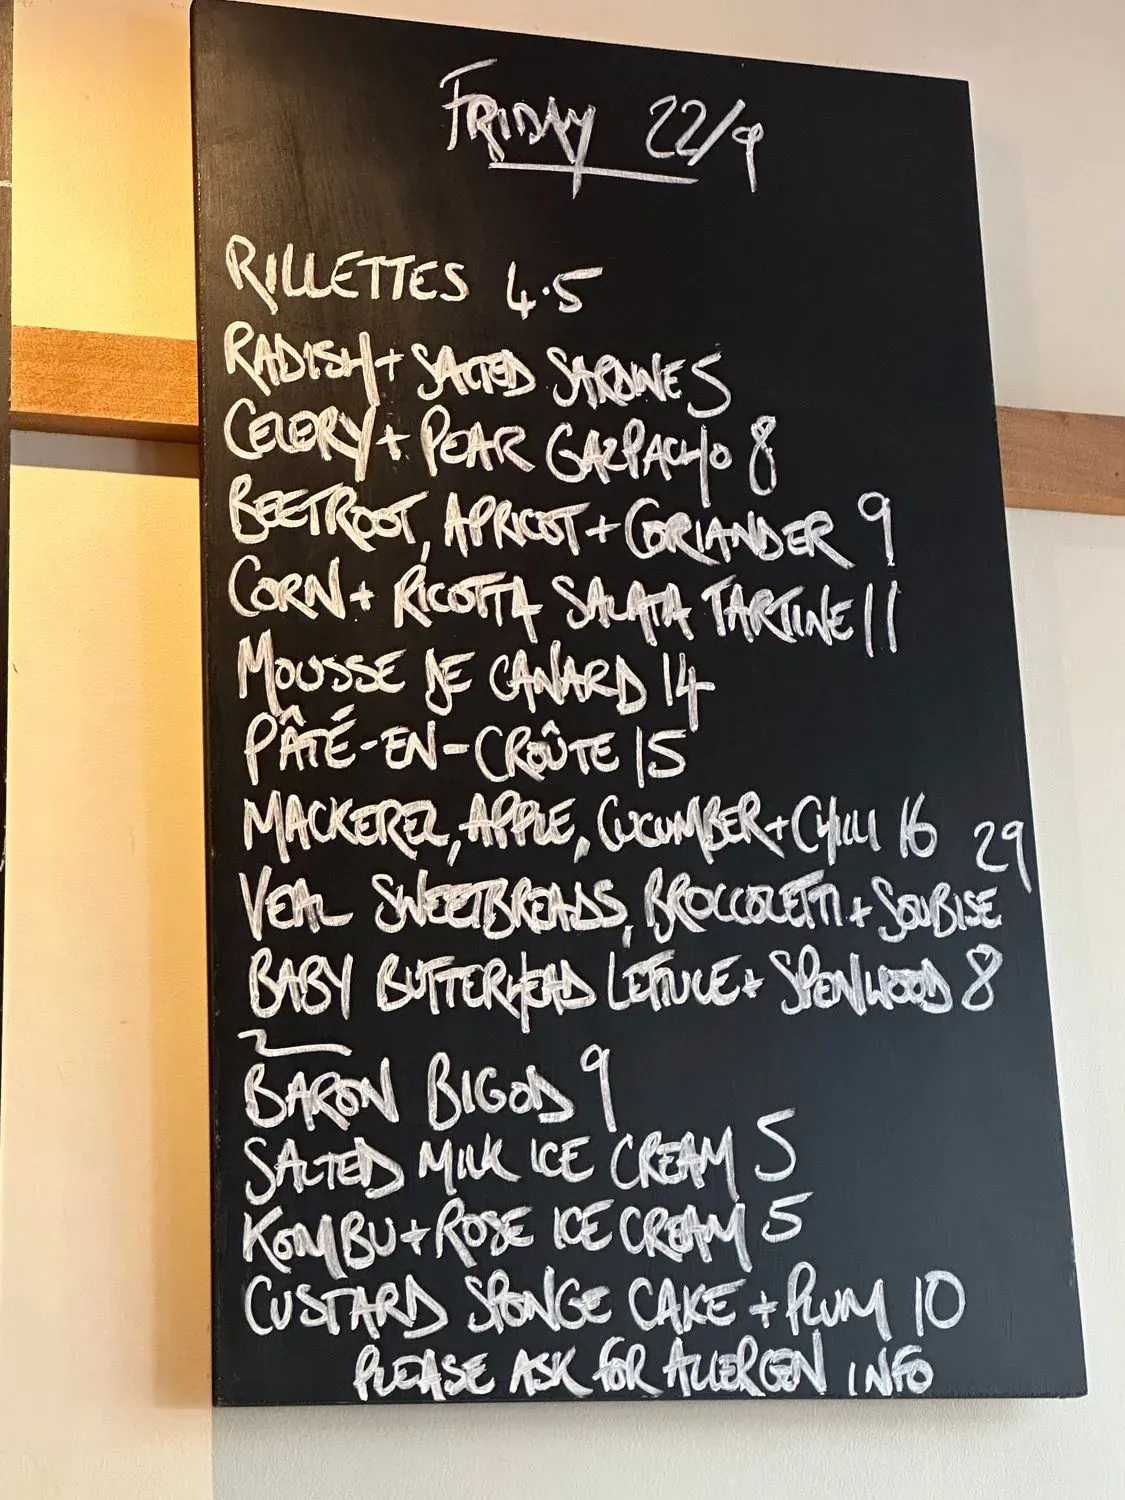 FRIDAY 22/9
RILLETTES 4.5
RADISH + SALTED SARDINE 5
CELERY + PEAR GAZPACHO 8
BEETROOT, APRICOT + CORIANDER 9
CORN + RICOTTA SALATA TARTINE 11
MOUSSE DE CANARD 14
PÂTÉ-EN-CROÛTE 15
MACKEREL, APPLE, CUCUMBER + CHILLI 16
29
VEAL SWEETBREADS, BROCCOLETTI + SOUBISE
BABY BUTTERHEAD LETTUCE + SPENWOOD 8
~
BARON BIGOD 9
SALTED MILK ICE CREAM 5
KOMBU + ROSE ICE CREAM 5
CUSTARD SPONGE CAKE + PLUM 10
PLEASE ASK FOR ALLERGEN INFO